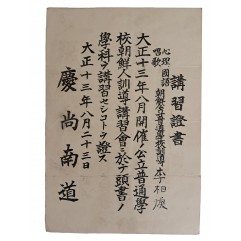 講習證書
心理 國語
唱歌
李相煥
大正十三年八月開催ノ公立普通學
校朝鮮人訓導講習會ニ於テ頭書ノ
學科ヲ講習セシコトヲ證ス
大正十三年八月二十三日
慶尚南道